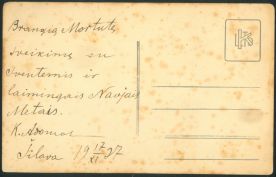 Brangią Mortutę
sveikinu su
Šventėmis ir
laimingais Naujais
Metais.
K. Adomas
Šilava 19 17/XII 37